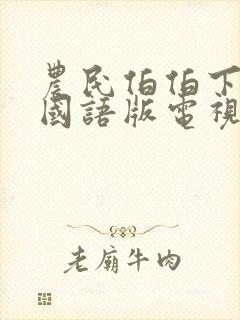 農民伯伯下
國語版電視
老廟牛肉